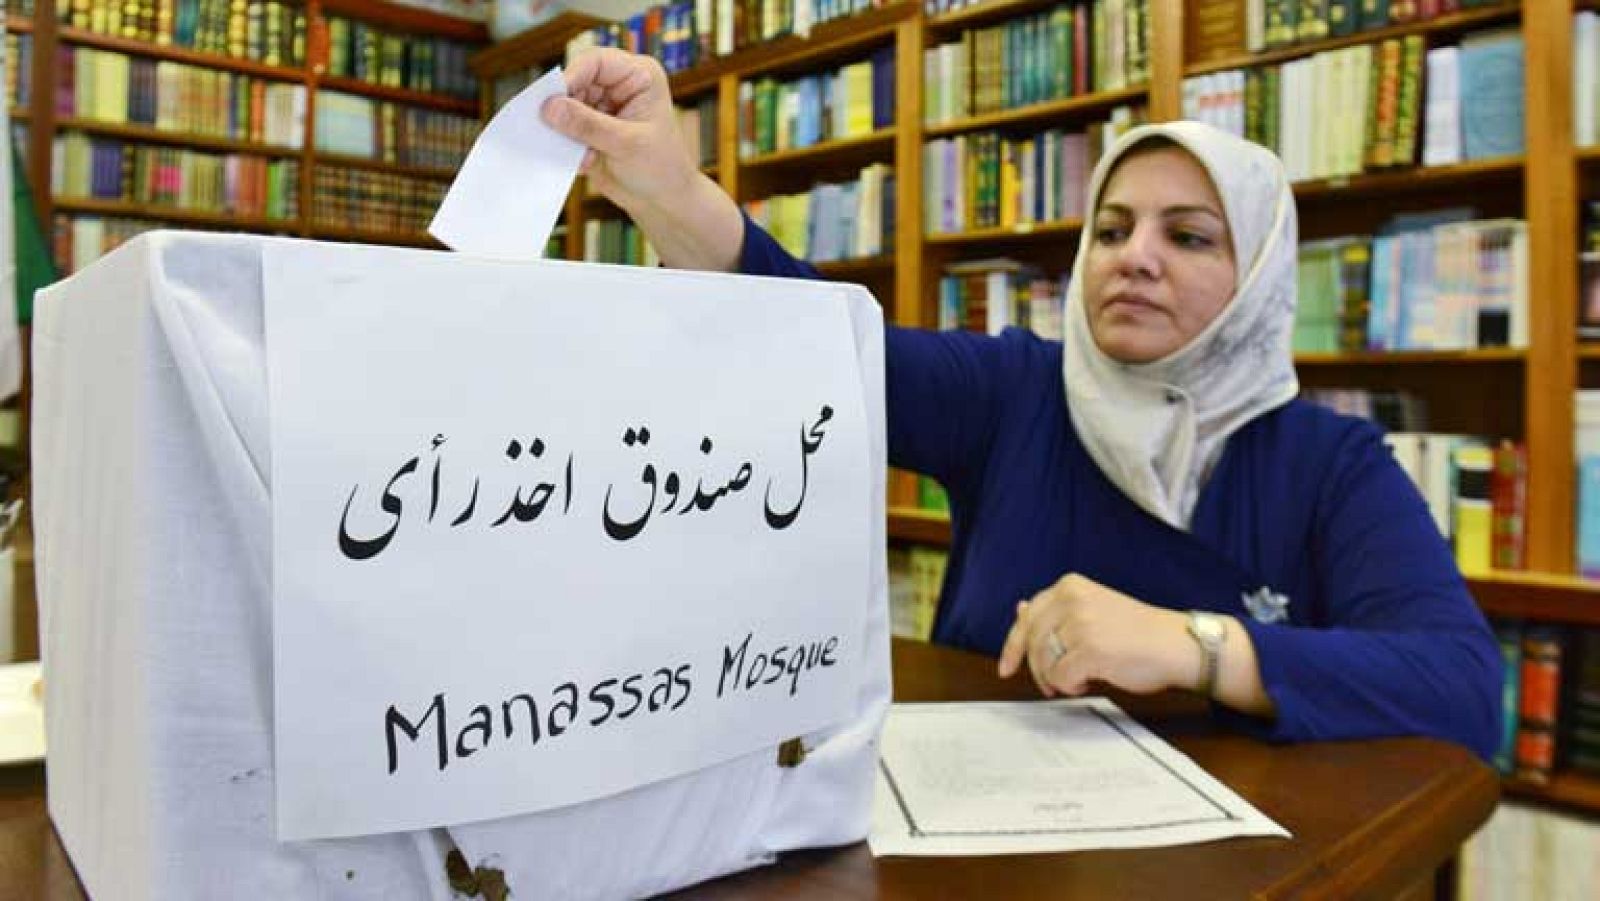 محل صندوق اخذ رأی
Manassas Mosque